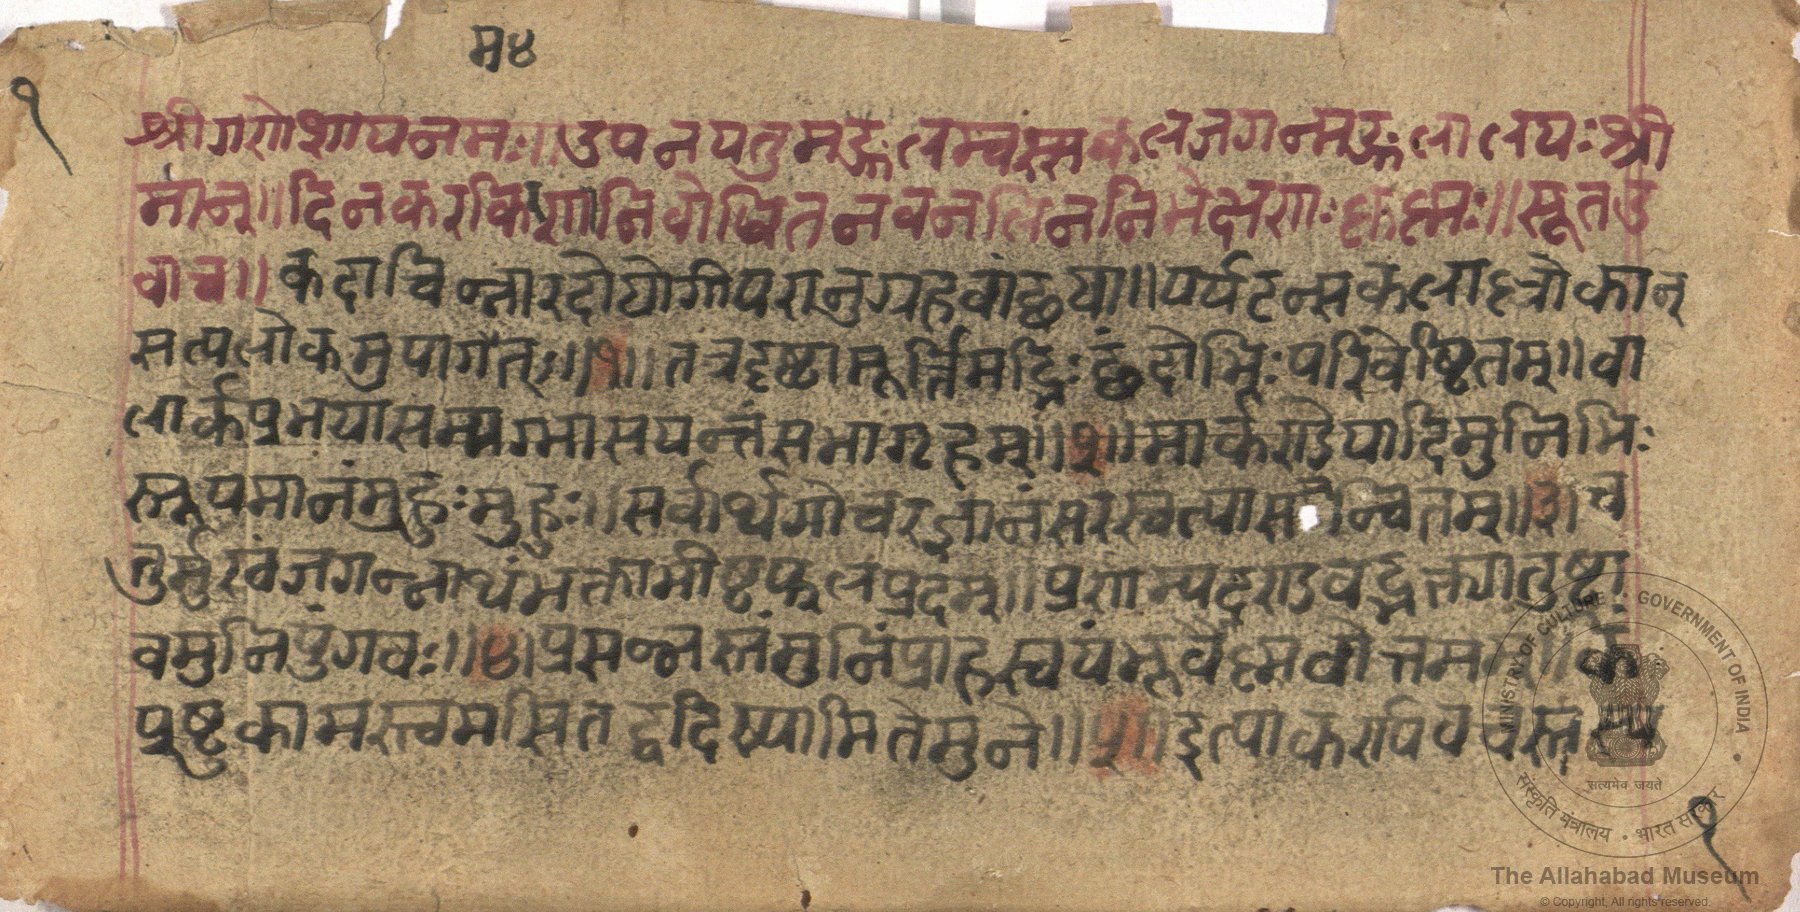 म४
१
श्रीगणेशायनमः॥उपनयतुमङ्गलम्वस्सकलजगन्मङ्गलालयःश्री
मान्॥दिनकरकिरणनिवोधितनवनलिननिभेक्षणःकृष्णः॥सूतउ
वाच॥कदाचिन्नारदोयोगीपरानुग्रहवांछया॥पर्यटन्सकलाल्लोकान्
सत्यलोकमुपागतः॥१॥तत्रदृष्टामूर्त्तिमद्भिःछंदोभिःपरिवेष्टितम्॥वा
लार्कप्रभयासम्यग्भासयन्तंसभागृहम्॥२॥मार्कण्डेयादिमुनिभिः
स्तूयमानंमुहुःमुहुः॥सर्वार्थगोचरज्ञानंसरस्वत्यासमन्वितम्॥३॥च
तुर्मुखंजगन्नाथंभक्ताभीष्टफलप्रदम्॥प्रणम्यदण्डवद्भक्त्यातुष्टा
वमुनिपुंगवः॥४॥प्रसन्नस्तंमुनिंप्राहस्वयंभूर्वैष्णवोत्तमम्॥किं
प्रष्टुकामस्त्वमसितद्वदिष्यामितेमुने॥५॥इत्याकर्ण्यवचस्तस्य
१
MINISTRY OF CULTURE • GOVERNMENT OF INDIA
सत्यमेव जयते
संस्कृति मंत्रालय • भारत सरकार
The Allahabad Museum
© Copyright, All rights reserved.